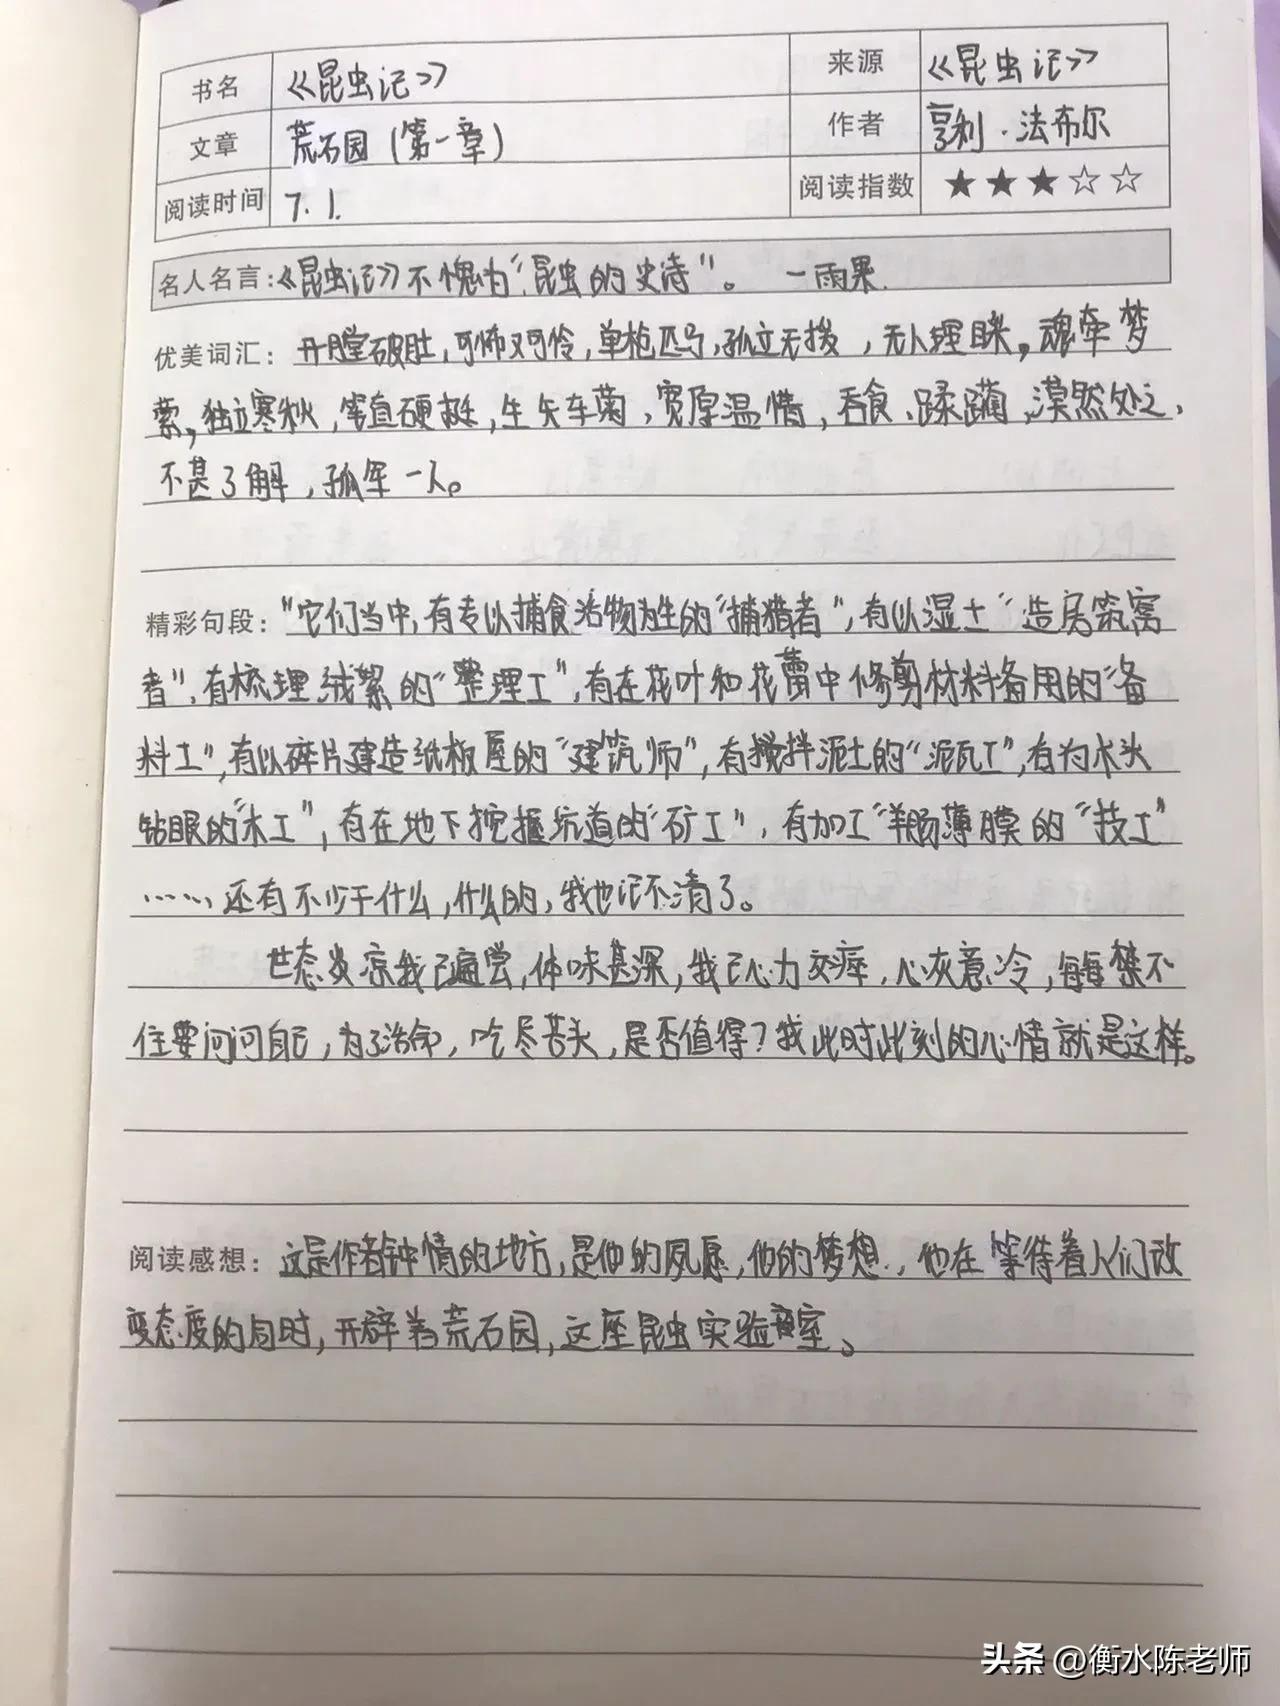 书名 《昆虫记》 来源 《昆虫记》
文章 荒石园(第一章) 作者 亨利·法布尔
阅读时间 7.1. 阅读指数 ★★★☆☆
名人名言:《昆虫记》不愧为“昆虫的史诗”。 —雨果.
优美词汇: 开膛破肚,可怖又可怜,单枪匹马,孤立无援,无人理睬,魂牵梦
萦,独立寒秋,笔直硬挺,生矢车菊,宽厚温情,吞食、蹂躏,漠然处之,
不甚了解,孤军一人。
精彩句段: “它们当中,有专以捕食活物为生的“捕猎者”,有以湿土“造房筑窝
者”,有梳理绒絮的“整理工”,有在花叶和花蕾中修剪材料备用的“备
料工”,有以碎片建造纸板屋的“建筑师”,有搅拌泥土的“泥瓦工”,有为木头
钻眼的“木工”,有在地下挖掘坑道的“矿工”,有加工“羊肠薄膜的“技工”
……还有不少干什么,什么的,我也记不清了。
世态炎凉我已遍尝,体味甚深,我已心力交瘁,心灰意冷,每每禁不
住要问问自己,为了活命,吃尽苦头,是否值得?我此时此刻的心情就是这样。
阅读感想: 这是作者钟情的地方,是他的夙愿,他的梦想.,他在等待着人们改
变态度的同时,开辟为荒石园,这座昆虫实验室。
头条 @衡水陈老师